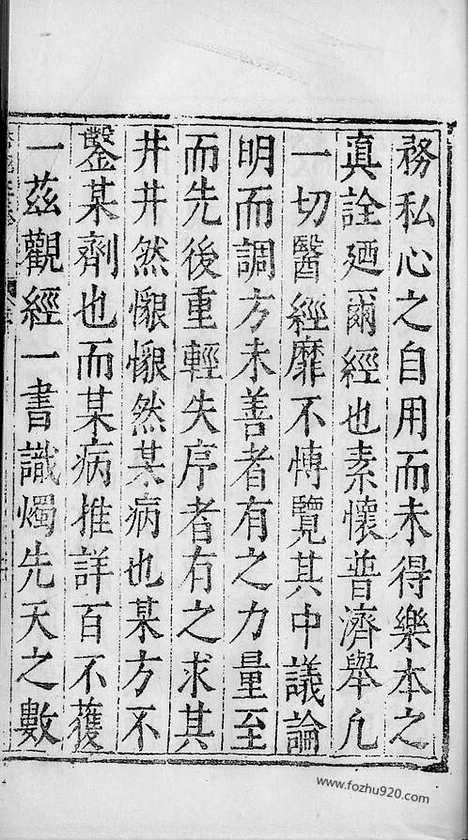 務私心之自用而未得樂本之
真詮廼爾經也素懷普濟舉凢
一切醫經靡不愽覽其中議論
明而調方未善者有之力量至
而先後重輕失序者有之求其
井井然懇懇然某病也某方不
鑿某劑也而某病推詳百不獲
一茲觀經一書識燭先天之數
www.fozhu920.com